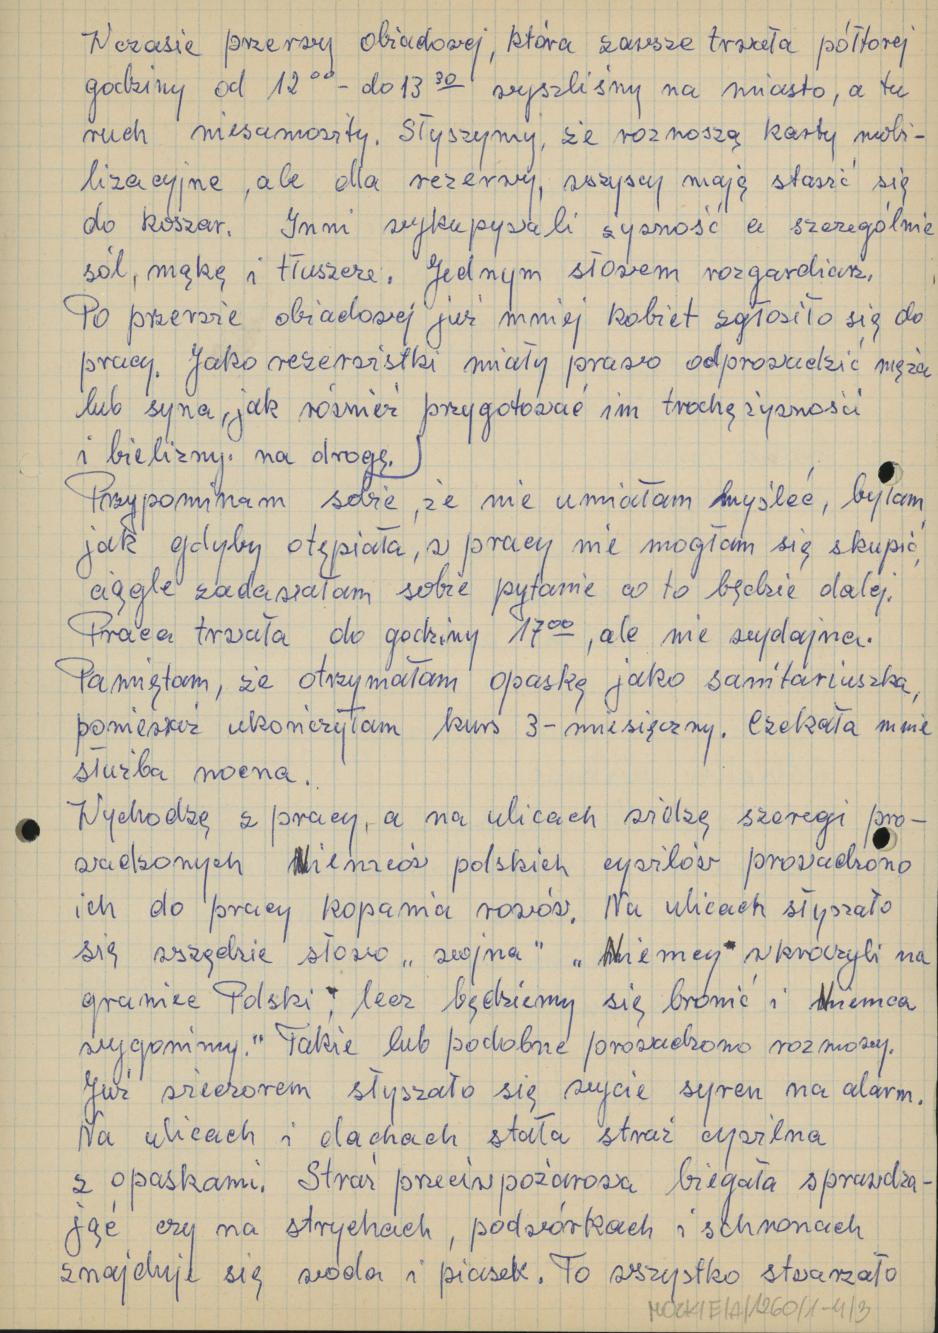 W czasie przerwy obiadowej, która zawsze trwała półtorej
godziny od 12⁰⁰ - do 13 ³⁰ wyszliśmy na miasto, a tu
ruch niesamowity. Słyszymy, że roznoszą karty mobi-
lizacyjne, ale dla rezerwy, wszyscy mają stawić się
do koszar. Inni wykupywali żywność a szczególnie
sól, mąkę i tłuszcze. Jednym słowem rozgardiasz.
Po przerwie obiadowej już mniej kobiet zgłosiło się do
pracy. Jako rezerwistki miały prawo odprowadzić męża
lub syna, jak również przygotować im trochę żywności
i bielizny. na drogę.
Przypominam sobie, że nie umiałam myśleć, byłam
jak gdyby otępiała, w pracy nie mogłam się skupić,
ciągle zadawałam sobie pytanie co to będzie dalej.
Praca trwała do godziny 17⁰⁰, ale nie wydajna.
Pamiętam, że otrzymałam opaskę jako sanitariuszka,
ponieważ ukończyłam kurs 3-miesięczny. Czekała mnie
służba nocna.
Wychodzę z pracy, a na ulicach widzę szeregi pro-
wadzonych Niemców polskich cywilów prowadzono
ich do pracy kopania rowów. Na ulicach słyszało
się wszędzie słowo „wojna" „Niemcy" wkroczyli na
granice Polski; lecz będziemy się bronić i Niemca
wygonimy." Takie lub podobne prowadzono rozmowy.
Już wieczorem słyszało się wycie syren na alarm.
Na ulicach i dachach stała straż cywilna
z opaskami. Straż przeciwpożarowa biegała sprawdza-
jąc czy na strychach, podwórkach i schronach
znajduje się woda i piasek. To wszystko stwarzało